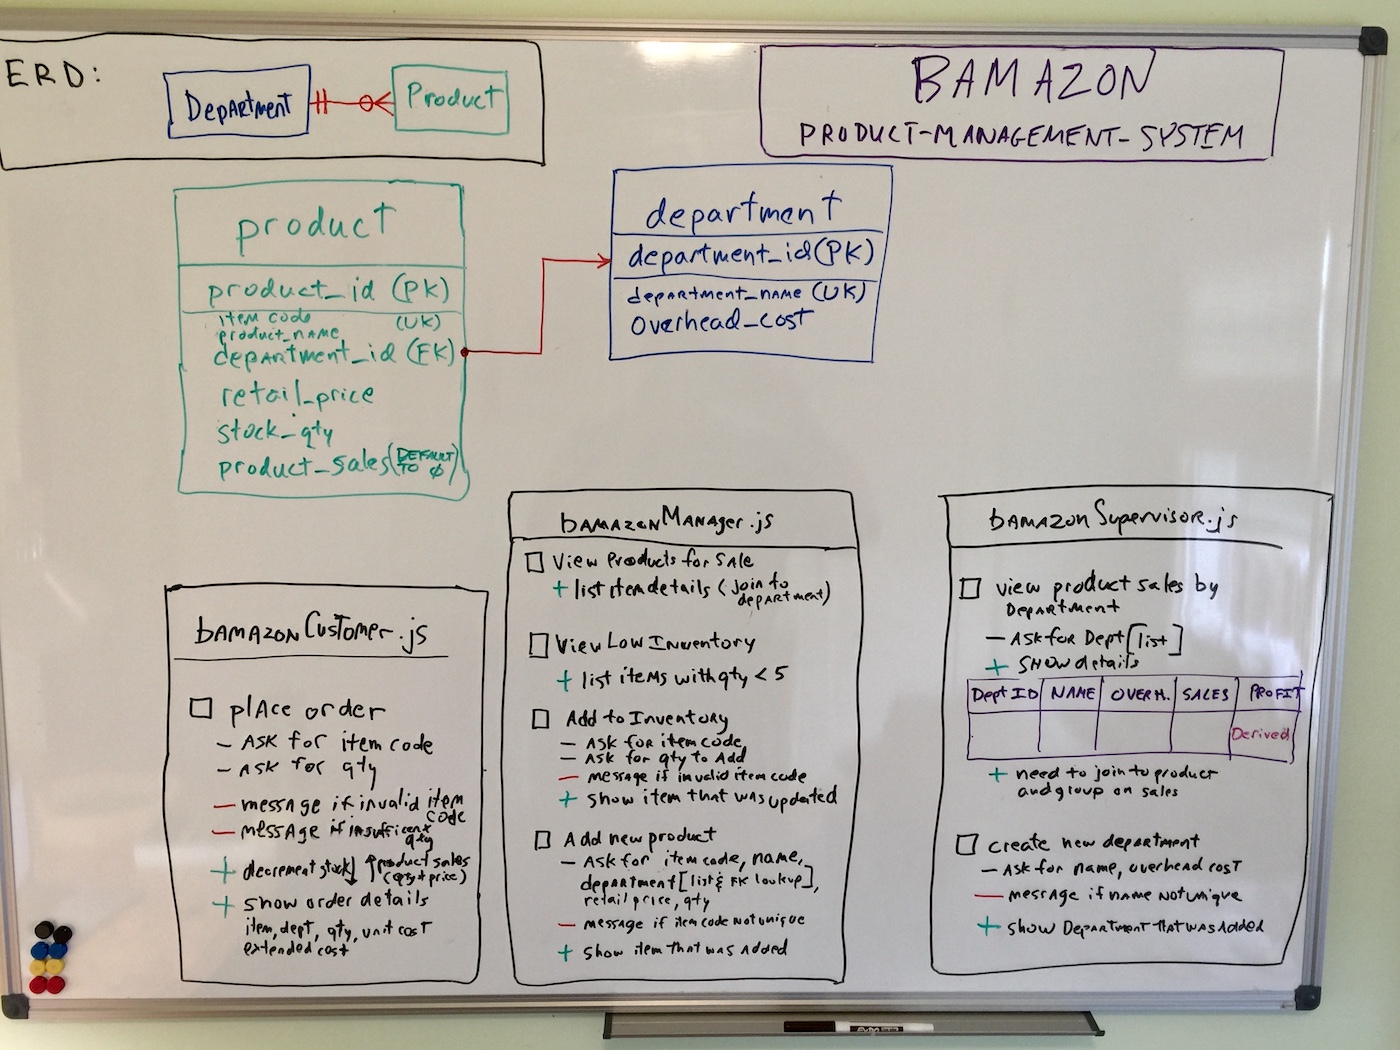 ERD:
Department
Product
BAMAZON
PRODUCT-MANAGEMENT-SYSTEM
product
product_id (PK)
item code (UK)
product_name
department_id (FK)
retail_price
stock_qty
product_sales (DEFAULT TO 0)
department
department_id (PK)
department_name (UK)
overhead_cost
bamazonCustomer.js
place order
- Ask for item code
- Ask for qty
- message if invalid item code
- message if insufficent qty
+ decrement stock↓ ↑product sales
(qty * price)
+ show order details
item, dept, qty, unit cost
extended cost
bamazonManager.js
View Products for Sale
+ list item details (join to
department)
View Low Inventory
+ list items with qty < 5
Add to Inventory
- Ask for item code
- Ask for qty to Add
- message if invalid item code
+ show item that was updated
Add new product
- Ask for item code, name,
department [list & FK lookup],
retail price, qty
- message if item code not unique
+ show item that was added
bamazonSupervisor.js
view product sales by
Department
- Ask for Dept [list]
+ show details
Dept ID NAME OVERH. SALES PROFIT
Derived
+ need to join to product
and group on sales
create new department
- Ask for name, overhead cost
- message if name not unique
+ show Department that was added